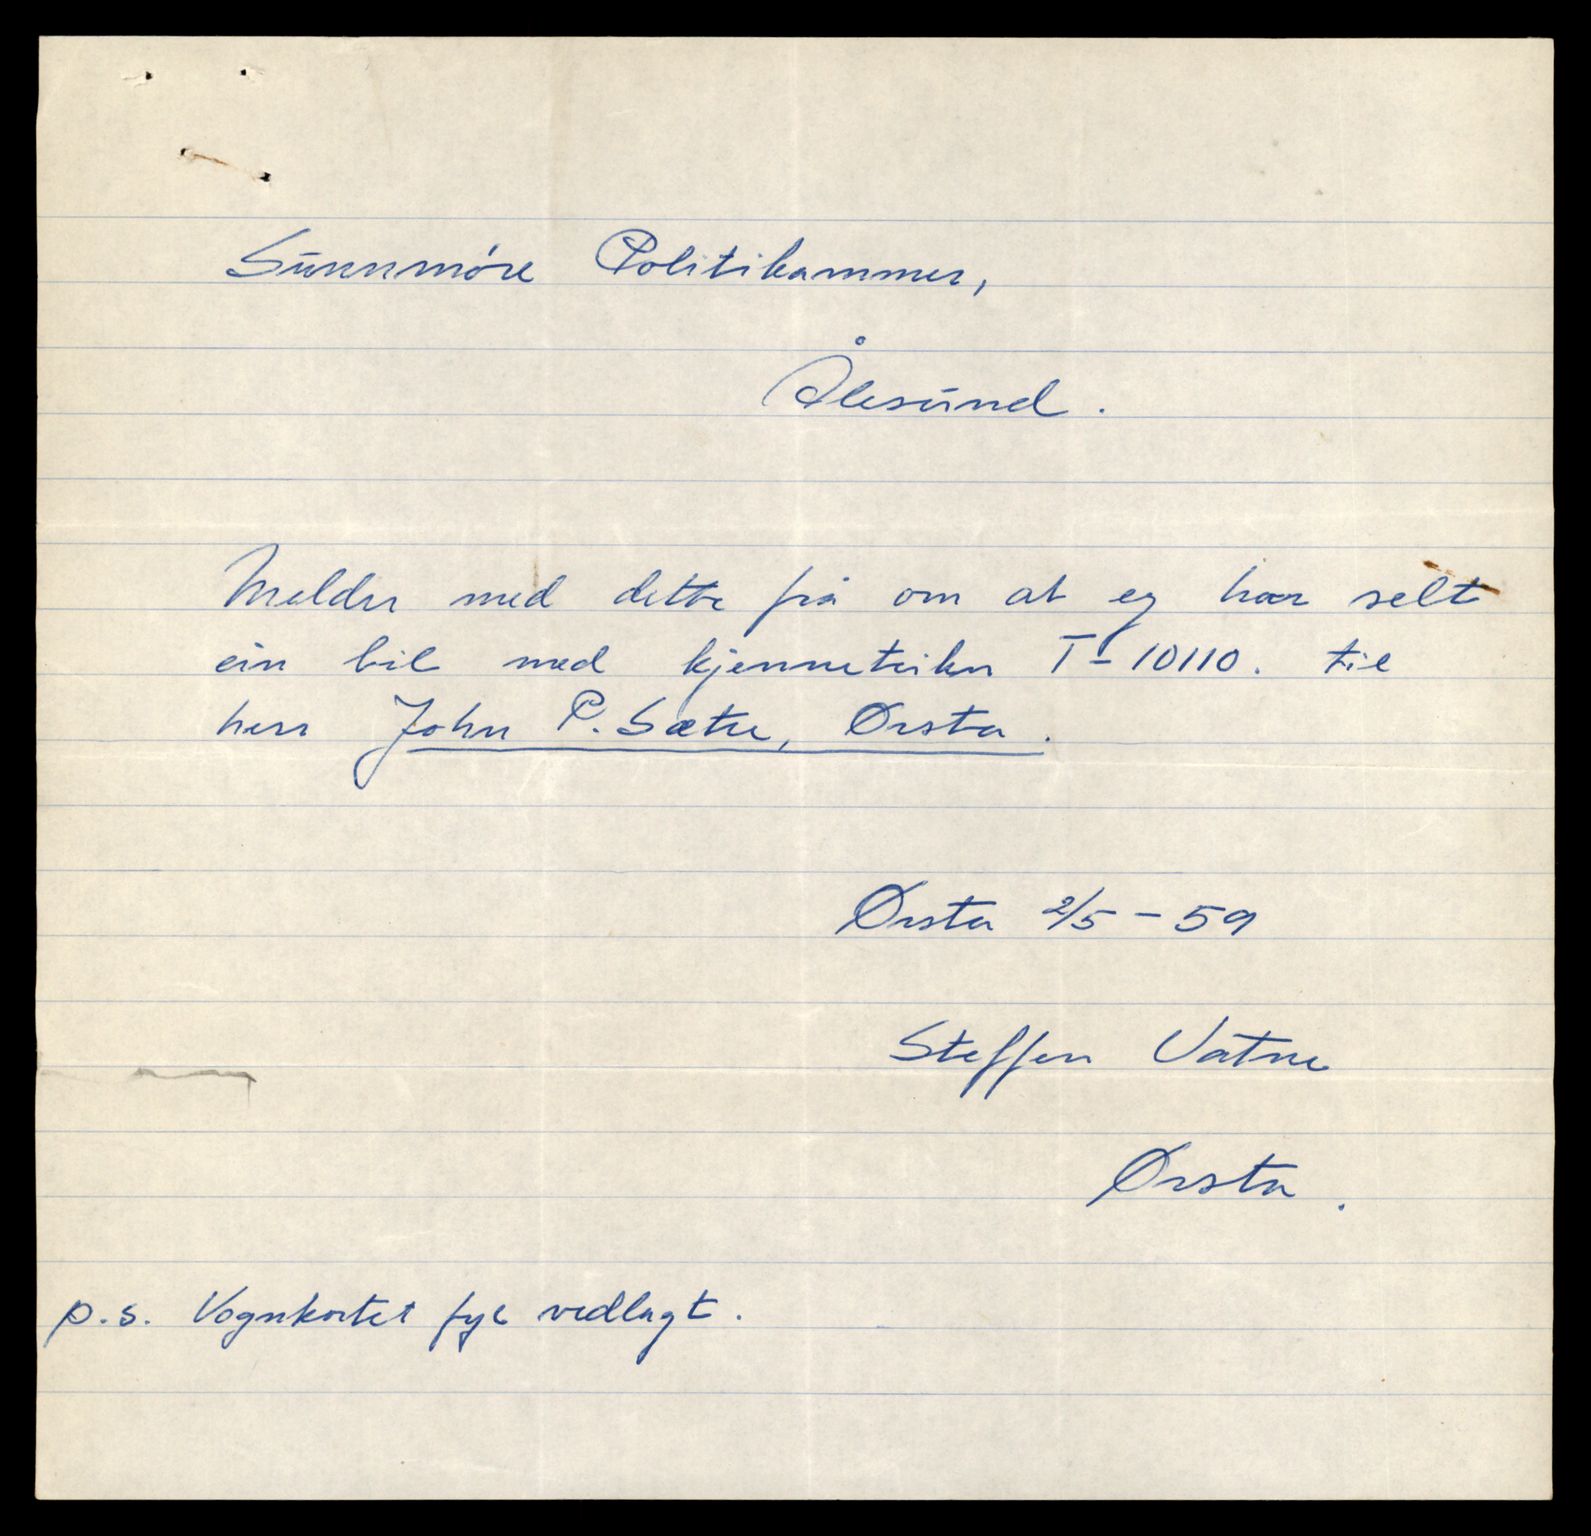 Sunnmöre Politikammer,
Ålesund.
Melder med dette frå om at eg har selt
ein bil med kjenneteikn T-10110. til
herr John P. Sætre, Ørsta.
Ørsta 2/5 - 59
Steffen Vatne
Ørsta.
p.s. Vognkortet fyl vedlagt.